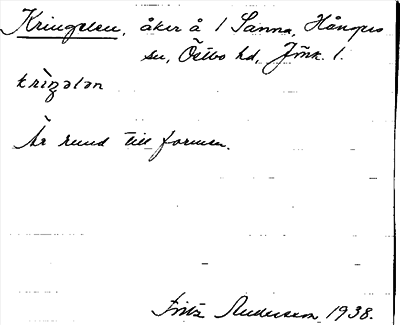 Kringelen, åker å 1 Sanna, Hångers
sn, Östbo hd, Jönk. l.
krìŋələn
Är rund till formen.
Fritz Anderson 1938.